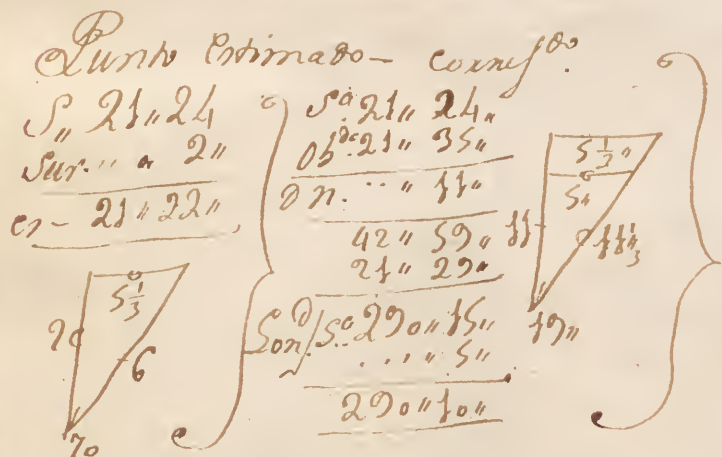 Punto Estimado — correg.do
S,, 21,,24
Sur.. ,, 2,,
es - 21,,22,,
5 1/3
2
6
70
S.a 21,, 24,,
Ob.da 21,, 35,,
Dn. .. ,, 11,,
42,, 59,,
21,, 29,,
Lon.d S.a 290,, 15,,
. . . ,, 5,,
290,,10,,
5 1/3 ,,
5,,
11
11 1/3
19,,